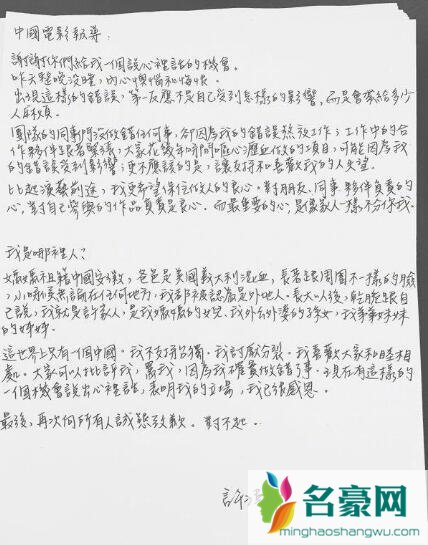 中國電影報導:
謝謝你們給我一個說心裡話的機會。
昨天整晚沒睡,內心懊惱和悔恨。
出現這樣的錯誤,第一反應不是自己受到怎樣的影響,而是會帶給多少
人麻煩。
團隊的同事們沒做錯任何事,卻因為我的錯誤熬夜工作;工作中的合
作夥伴跟著緊張,大家花幾年時間嘔心瀝血做的項目,可能因為我
的錯誤受到影響;更不應該的是,讓支持和喜歡我的人失望。
比起演藝前途,我更希望保住做人的良心。對朋友、同事、夥伴負責的
心,對自己參與的作品負責是良心。而最重要的心,是像家人一樣不分你我。
我是哪裡人?
媽媽祖籍中國安徽,爸爸是美國義大利混血,長著跟周圍不一樣的臉
,小時候無論在任何地方,我都被認為是外地人。長大以後,乾脆跟自
己說,我就是許家人,是我媽媽的女兒,我外公外婆的孫女,我弟弟妹妹
的姊姊。
這世界上只有一個中國。我不支持台獨。我討厭分裂。我喜歡大家和睦相
處。大家可以批評我,罵我,因為我確實做錯了事。現在有這樣的
一個機會說出心裡話,表明我的立場,我已很感恩。
最後,再次向所有人誠懇致歉。對不起。
許
名豪网
minghaoshangwu.com